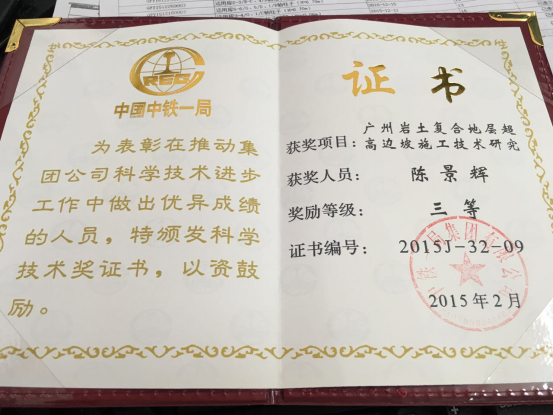 中国中铁一局
为表彰在推动集
团公司科学技术进步
工作中做出优异成绩
的人员，特颁发科学
技术奖证书，以资鼓
励。
证书
获奖项目：广州岩土复合地层超
高边坡施工技术研究
获奖人员：陈景辉
奖励等级：三等
证书编号：2015J-32-09
2015年2月